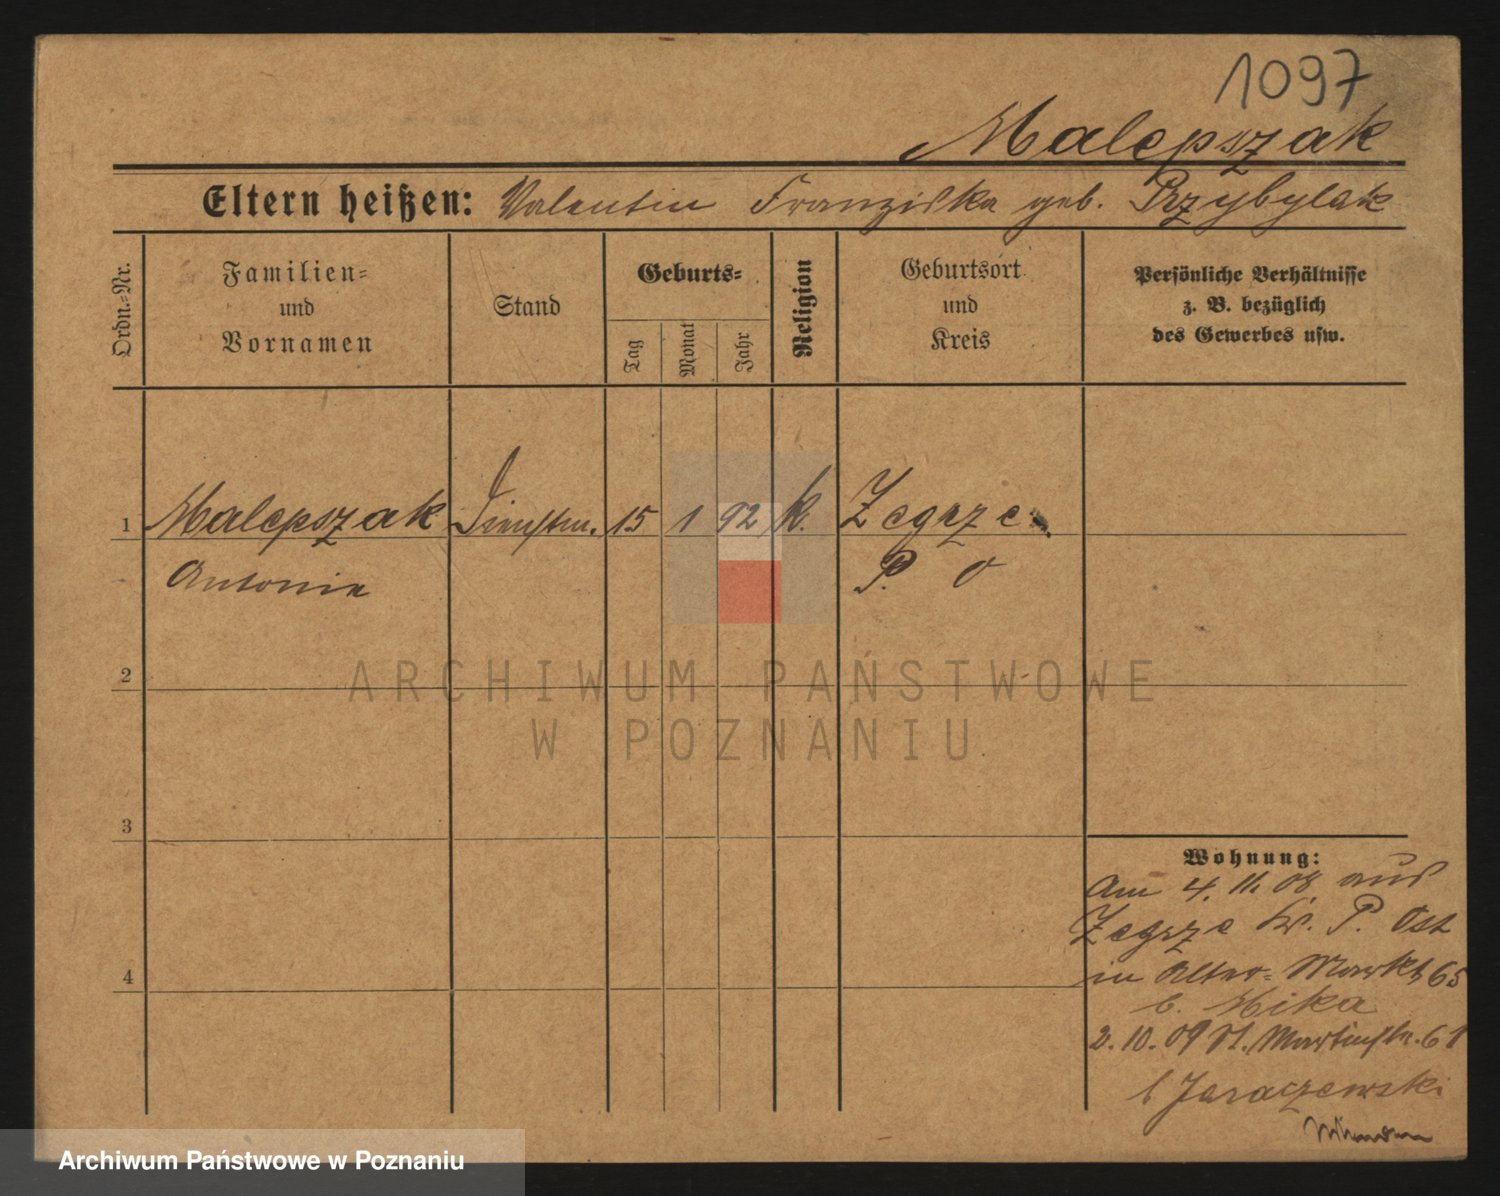 1097
Malepszak
Eltern heißen: Valentin Franziska geb. Przybylak
Ordn.=Nr.
Familien=
und
Vornamen
Stand
Geburts=
Tag
Monat
Jahr
Religion
Geburtsort
und
Kreis
Persönliche Verhältnisse
z. B. bezüglich
des Gewerbes usw.
1 Malepszak Dienstm. 15 1 92 k. Zegrze
Antonie P. O
2
3
4
Wohnung:
Am 4. 11. 08 aus
Zegrze Kr. P. Ost
in Alter= Markt 65
b. Mika
2. 10. 09 St. Martinstr. 61
b Jaraczewski
ARCHIWUM PAŃSTWOWE
W POZNANIU
Archiwum Państwowe w Poznaniu